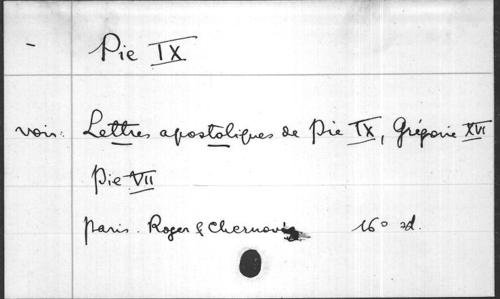 - Pie IX
voir: Lettres apostoliques de Pie IX, Grégoire XVI
Pie VII
Paris. Roger & Chernoviz 16° sd.